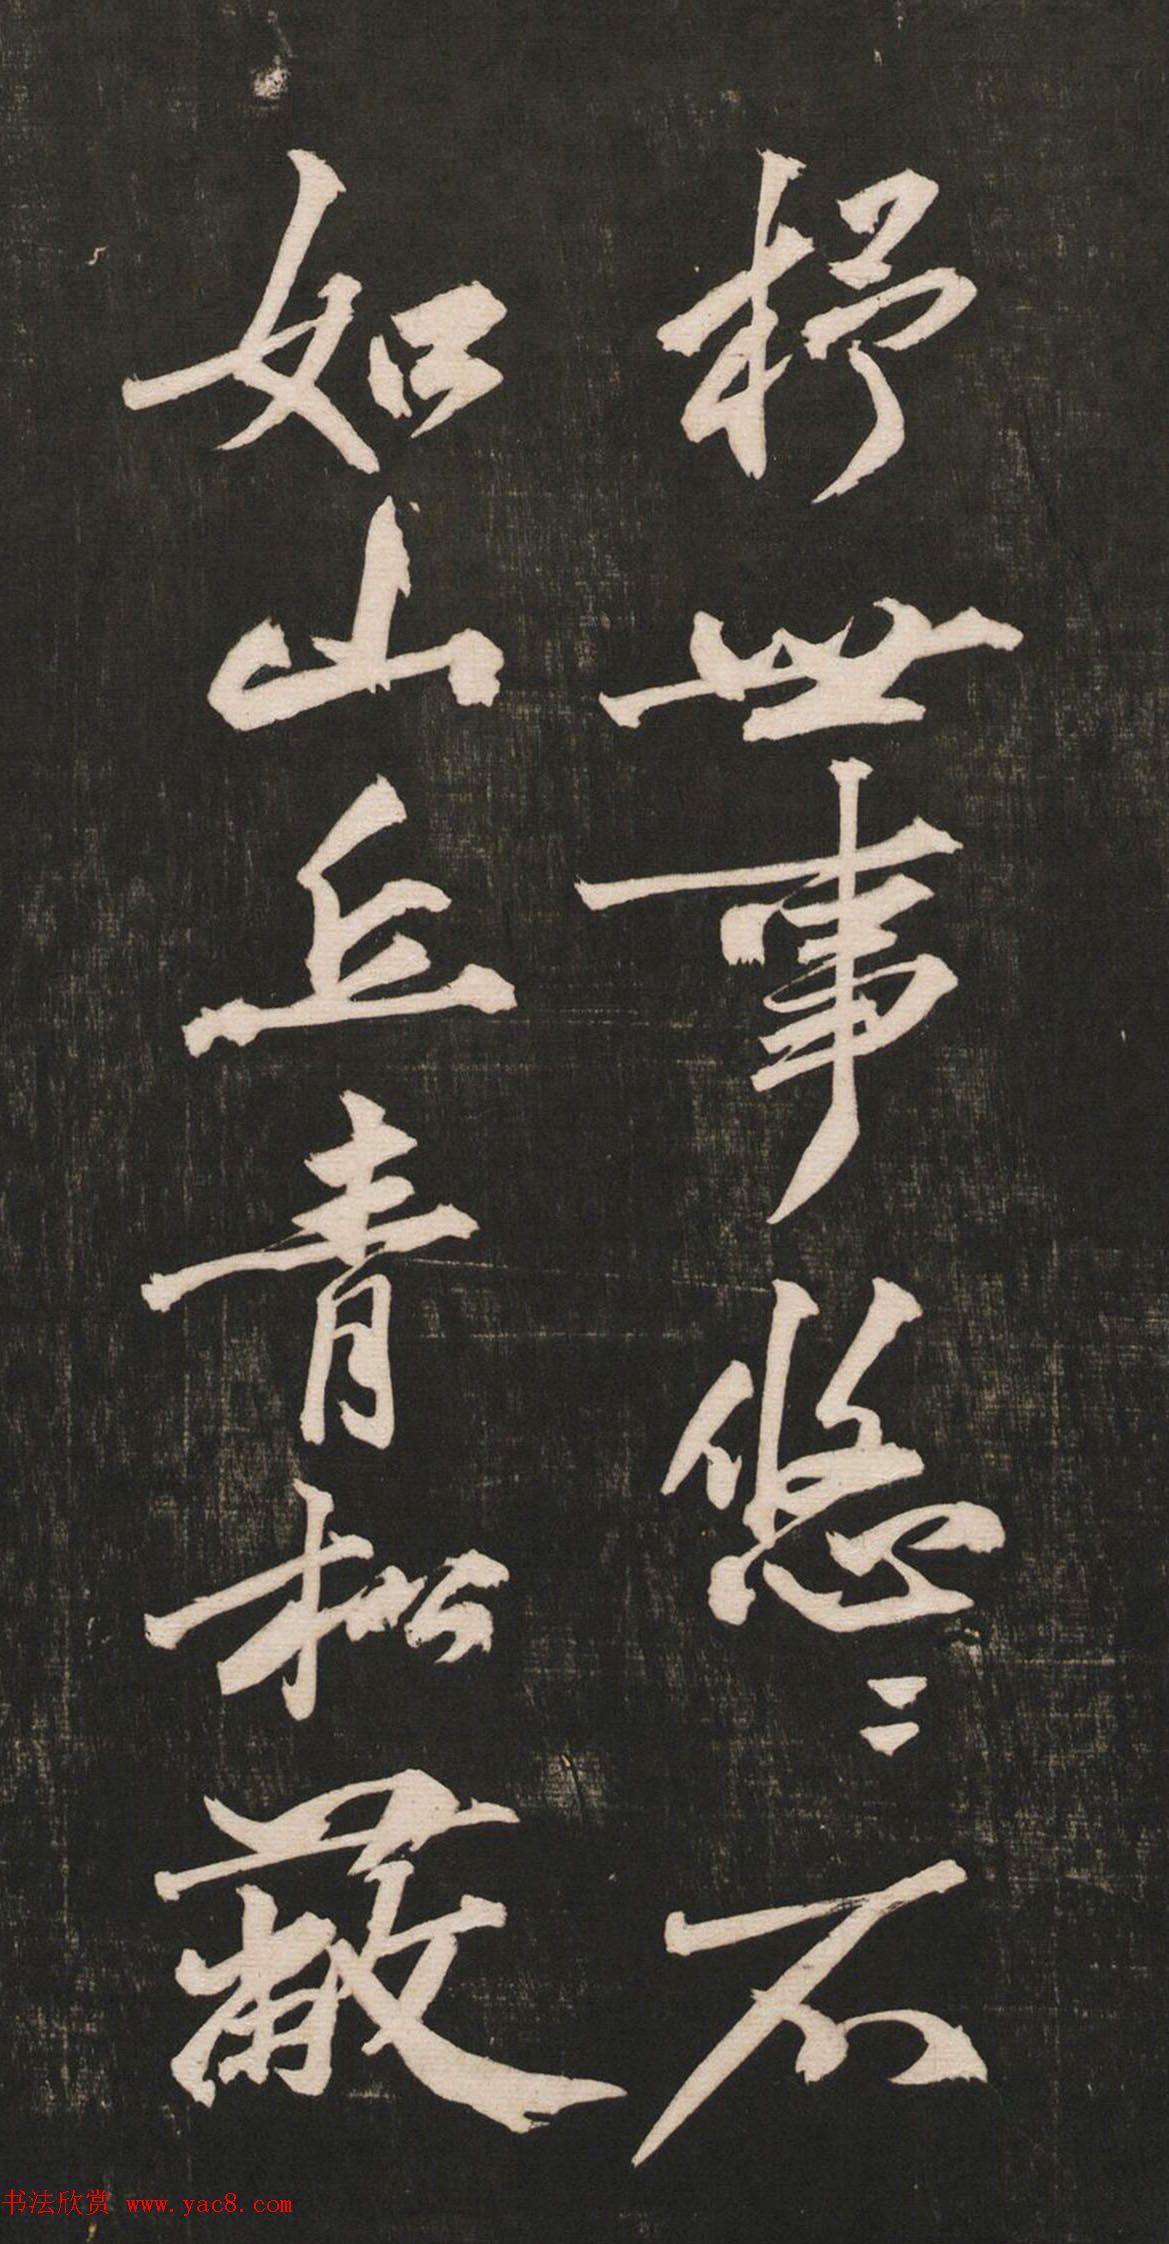 杼世事悠々不
如山丘青松蔽
书法欣赏 www.yac8.com